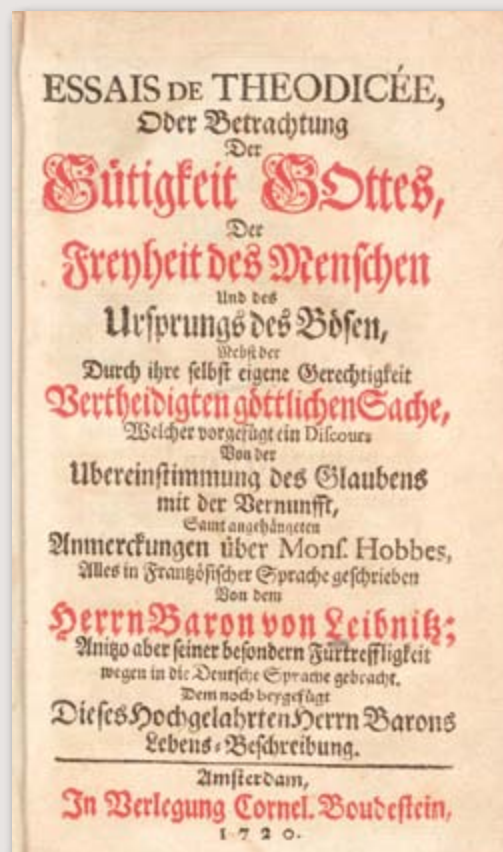 ESSAIS DE THEODICÉE,
Oder Betrachtung
Der
Gütigkeit GOttes,
Der
Freyheit des Menschen
Und des
Ursprungs des Bösen,
Nebst der
Durch ihre selbst eigene Gerechtigkeit
Vertheidigten göttlichen Sache,
Welcher vorgefügt ein Discours
Von der
Ubereinstimmung des Glaubens
mit der Vernunfft,
Samt angehängeten
Anmerckungen über Mons. Hobbes,
Alles in Frantzösischer Sprache geschrieben
Von dem
Herrn Baron von Leibnitz;
Anitzo aber seiner besondern Fürtreffligkeit
wegen in die Deutsche Sprache gebracht.
Dem noch beygefügt
Dieses Hochgelahrten Herrn Barons
Lebens-Beschreibung.
Amsterdam,
In Verlegung Cornel. Boudestein,
1720.